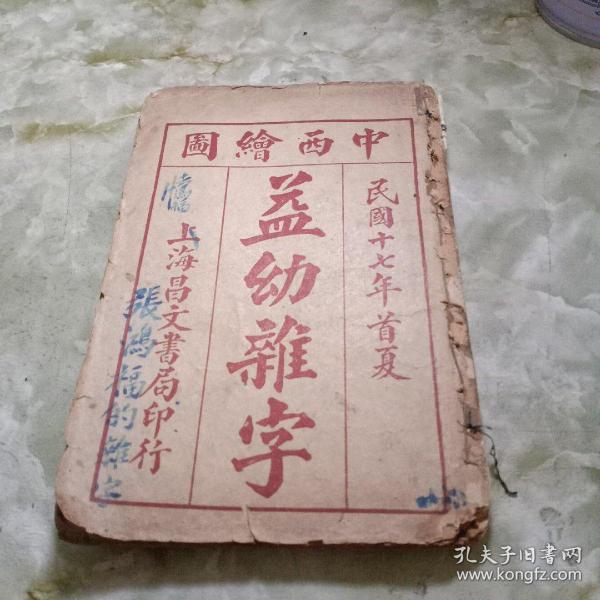 中西繪圖
民國十七年首夏
益幼雜字
上海昌文書局印行
張鴻福的雜字
孔夫子旧书网
www.kongfz.com